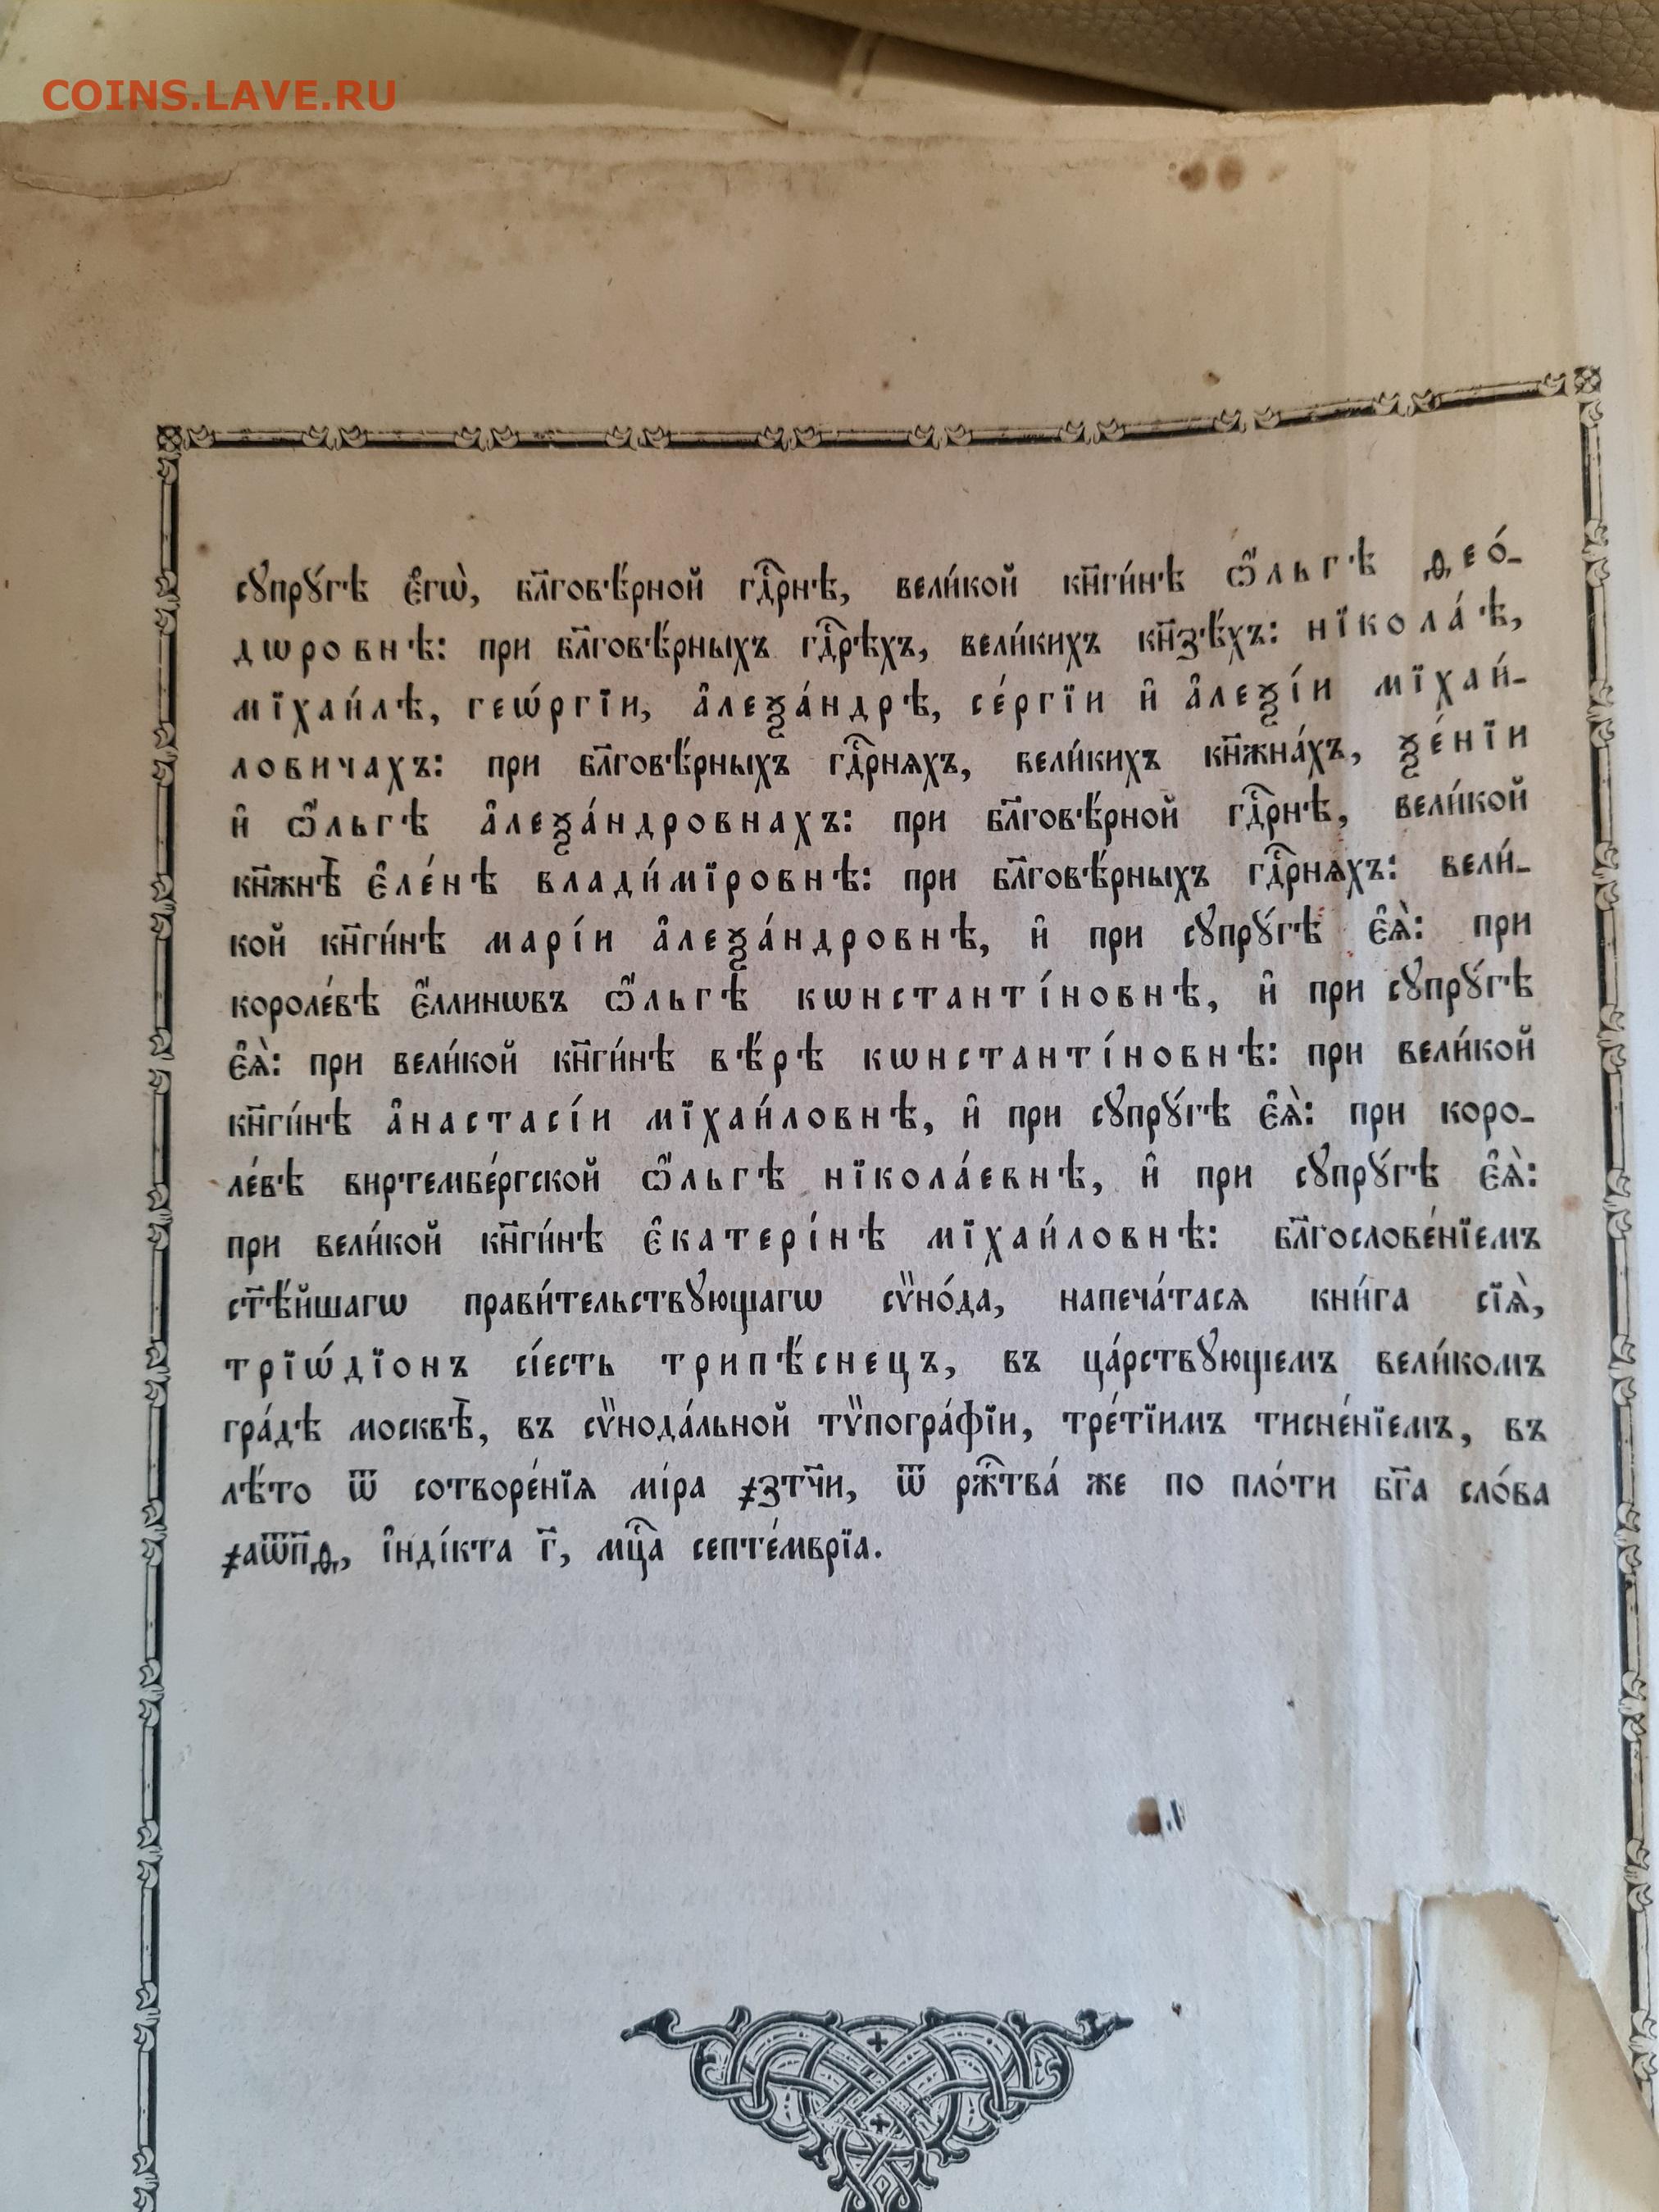 COINS.LAVE.RU
сꙋпрꙋ́гѣ є҆гѡ̀, бл҃говѣ́рной гдⷭ҇рнѣ, вели́кой кн҃ги́нѣ ѻ҆́льгѣ ѳео́-
дѡровнѣ: при бл҃говѣ́рныхъ гдⷭ҇рѣхъ, вели́кихъ кн҃зѣ́хъ: нїкола́ѣ,
мїхаи́лѣ, геѡ́ргїи, а҆леѯа́ндрѣ, се́ргїи и҆ а҆леѯі́и мїхаи́-
ловичахъ: при бл҃говѣ́рныхъ гдⷭ҇рняхъ, вели́кихъ кн҃жна́хъ, ѯе́нїи
и҆ ѻ҆́льгѣ а҆леѯа́ндровнахъ: при бл҃говѣ́рной гдⷭ҇рнѣ, вели́кой
кн҃жнѣ̀ є҆ле́нѣ влади́мїровнѣ: при бл҃говѣ́рныхъ гдⷭ҇рняхъ: вели́-
кой кн҃ги́нѣ марі́и а҆леѯа́ндровнѣ, и҆ при сꙋпрꙋ́гѣ є҆ѧ̀: при
короле́вѣ є҆́ллинѡвъ ѻ҆́льгѣ кѡнстанті́новнѣ, и҆ при сꙋпрꙋ́гѣ
є҆ѧ̀: при вели́кой кн҃ги́нѣ вѣ́рѣ кѡнстанті́новнѣ: при вели́кой
кн҃ги́нѣ а҆настасі́и мїхаи́ловнѣ, и҆ при сꙋпрꙋ́гѣ є҆ѧ̀: при коро-
ле́вѣ виртембе́ргской ѻ҆́льгѣ нїкола́евнѣ, и҆ при сꙋпрꙋ́гѣ є҆ѧ̀:
при вели́кой кн҃ги́нѣ є҆катері́нѣ мїхаи́ловнѣ: бл҃гослове́нїемъ
ст҃ѣ́йшагѡ прави́тельствꙋющагѡ сѷно́да, напеча́тася кни́га сїѧ̀,
трїѡ́дїонъ сі́есть трипѣ́снецъ, въ ца́рствꙋющемъ вели́комъ
гра́дѣ москвѣ̀, въ сѷнода́льной тѷпогра́фїи, тре́тїимъ тисне́нїемъ, въ
лѣ́то ѿ сотворе́нїя мі́ра ҂зтч҃и, ѿ рж҃тва́ же по пло́ти бг҃а сло́ва
҂аѿп҃ѳ, і҆нді́кта г҃, мцⷭ҇а септе́мврїа.